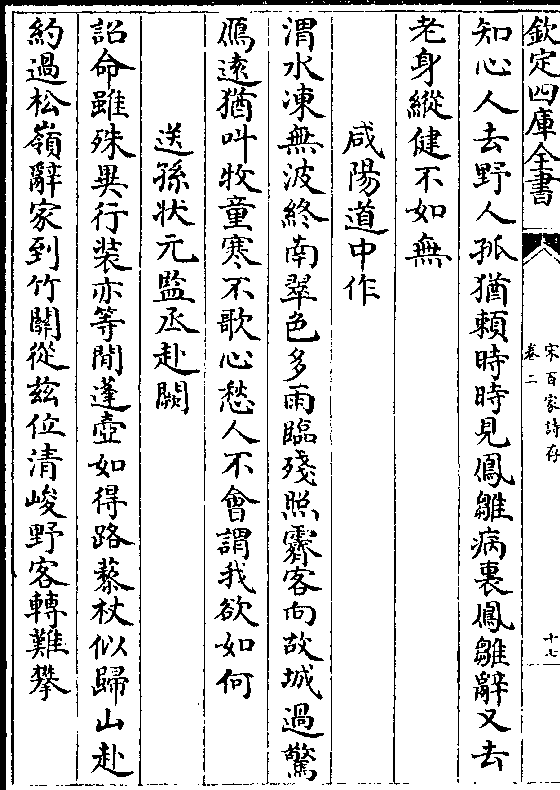 欽定四庫全書
宋百家詩存
卷二
十七
知心人去野人孤猶賴時時見鳳雛病裏鳳雛辭又去
老身縱健不如無
咸陽道中作
渭水凍無波終南翠色多雨臨殘照霽客向故城過驚
鴈遠猶叫牧童寒不歌心愁人不會謂我欲如何
送孫狀元監丞赴闕
詔命雖殊異行裝亦等閒蓬壺如得路藜杖似歸山赴
約過松嶺辭家到竹關從兹位清峻野客轉難攀